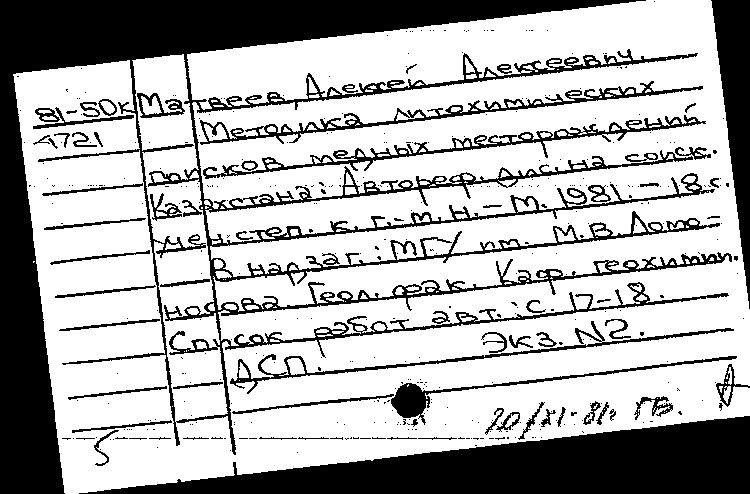 81-50к Матвеев, Алексей Алексеевич.
4721 Методика литохимических
поисков медных месторождений
Казахстана: Автореф. дис. на соиск.
учен. степ. к. г.-м. н. - М., 1981. - 18 с.
В надзаг.: МГУ им. М.В. Ломо=
носова. Геол. фак. Каф. геохимии.
Список работ авт.: с. 17-18.
ДСП. Экз. N2.
20/XI-81. ГВ.
5